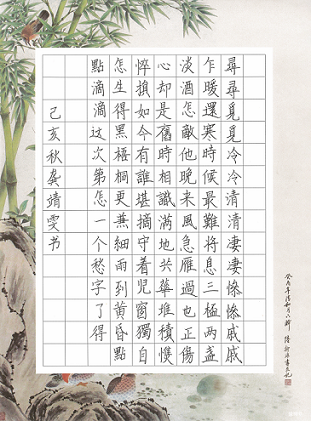 尋尋覓覓冷冷清清凄凄慘慘戚戚
乍暖還寒時候最難將息三極两盞
淡酒怎敵他晚来風急雁過也正傷
心却是舊時相識滿地共華堆積憔
悴損如今有誰堪摘守着児窗獨自
怎生得黑梧桐更兼細雨到黄昏點
點滴滴这次第怎一个愁字了得
己亥秋龔靖雯书